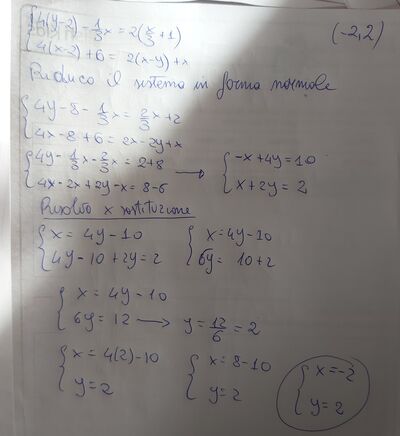 {4(y-2) - 1/3 x = 2(x/3 + 1) (-2,2)
4(x-2) + 6 = 2(x-y) + x
Riduco il sistema in forma normale
{4y - 8 - 1/3 x = 2/3 x + 2
4x - 8 + 6 = 2x - 2y + x
{4y - 1/3 x - 2/3 x = 2 + 8 → {-x + 4y = 10
4x - 2x + 2y - x = 8 - 6 x + 2y = 2
Risolvo x sostituzione
{x = 4y - 10 {x = 4y - 10
4y - 10 + 2y = 2 6y = 10 + 2
{x = 4y - 10
6y = 12 → y = 12/6 = 2
{x = 4(2) - 10 {x = 8 - 10 {x = -2
y = 2 y = 2 y = 2